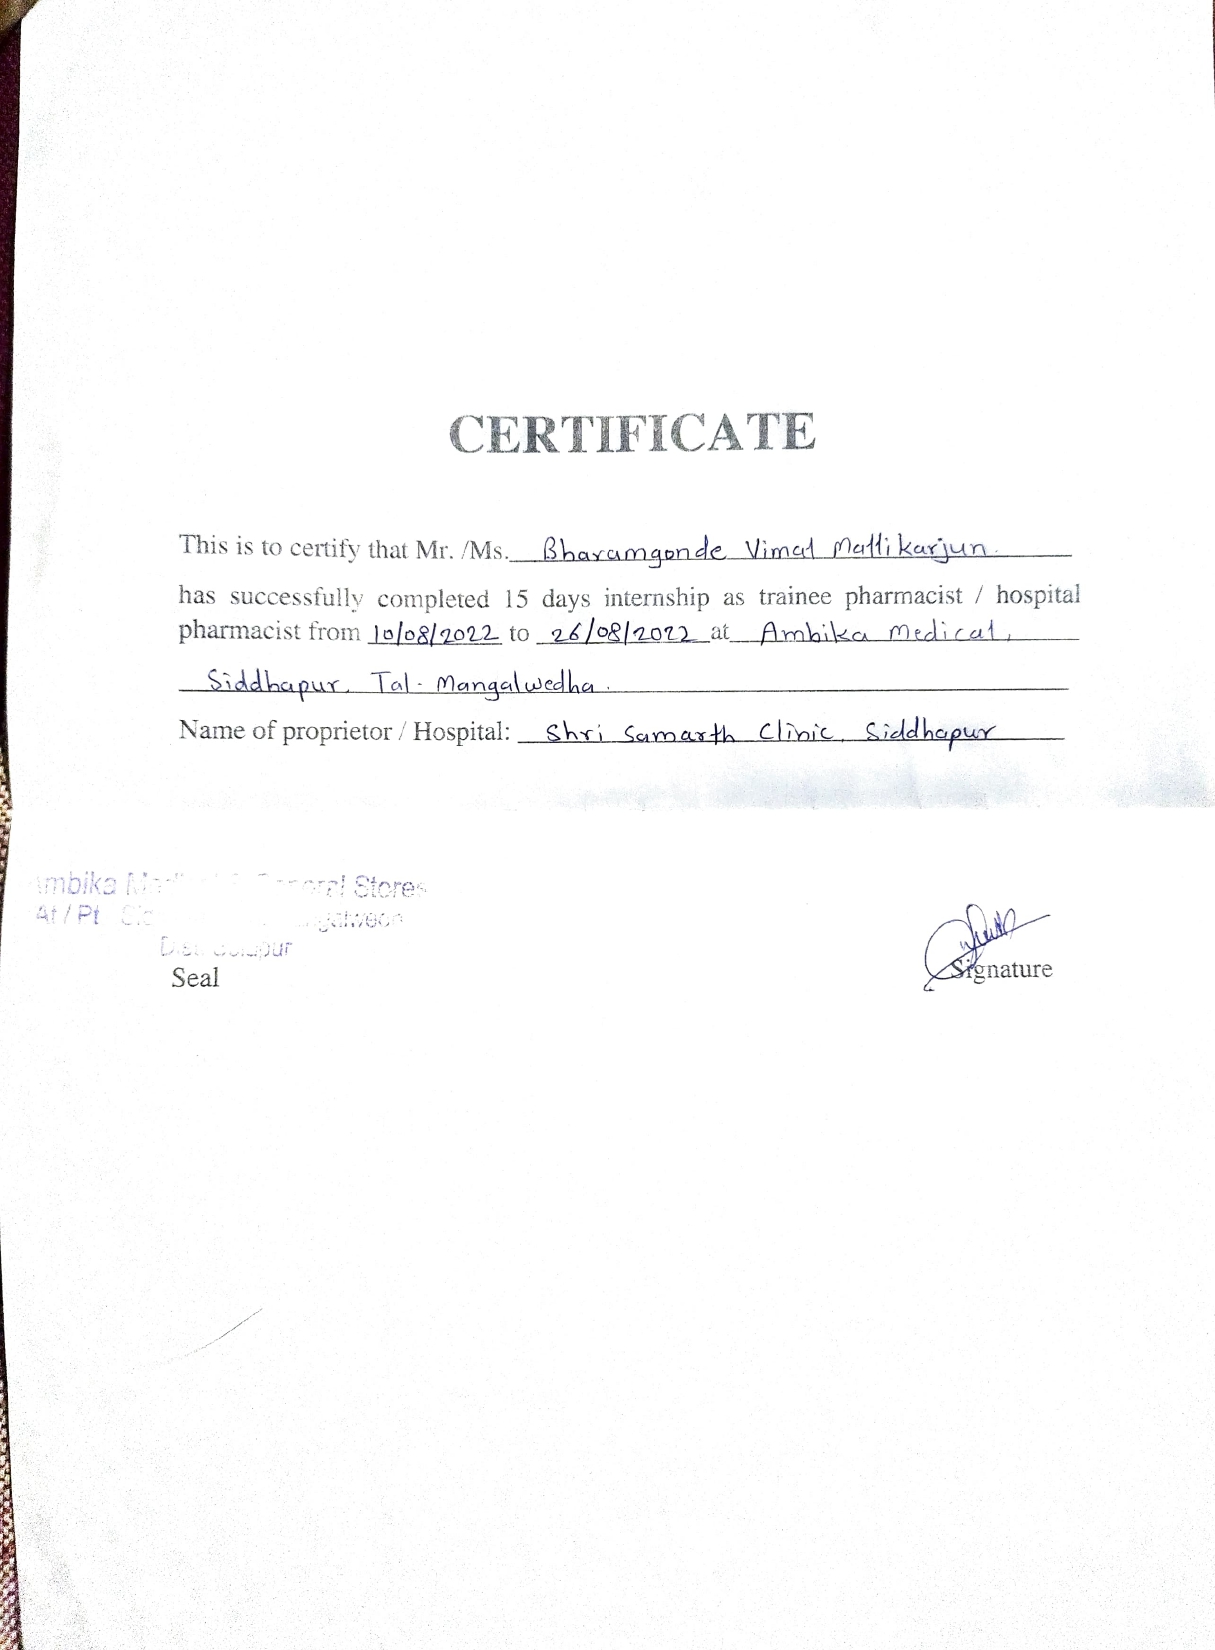 CERTIFICATE
This is to certify that Mr. /Ms. Bharamgonde Vimal Mallikarjun.
has successfully completed 15 days internship as trainee pharmacist / hospital
pharmacist from 10/08/2022 to 26/08/2022 at Ambika Medical,
Siddhapur, Tal - Mangalwedha.
Name of proprietor / Hospital: Shri Samarth Clinic, Siddhapur
Stores
At / Pt
Seal
Signature